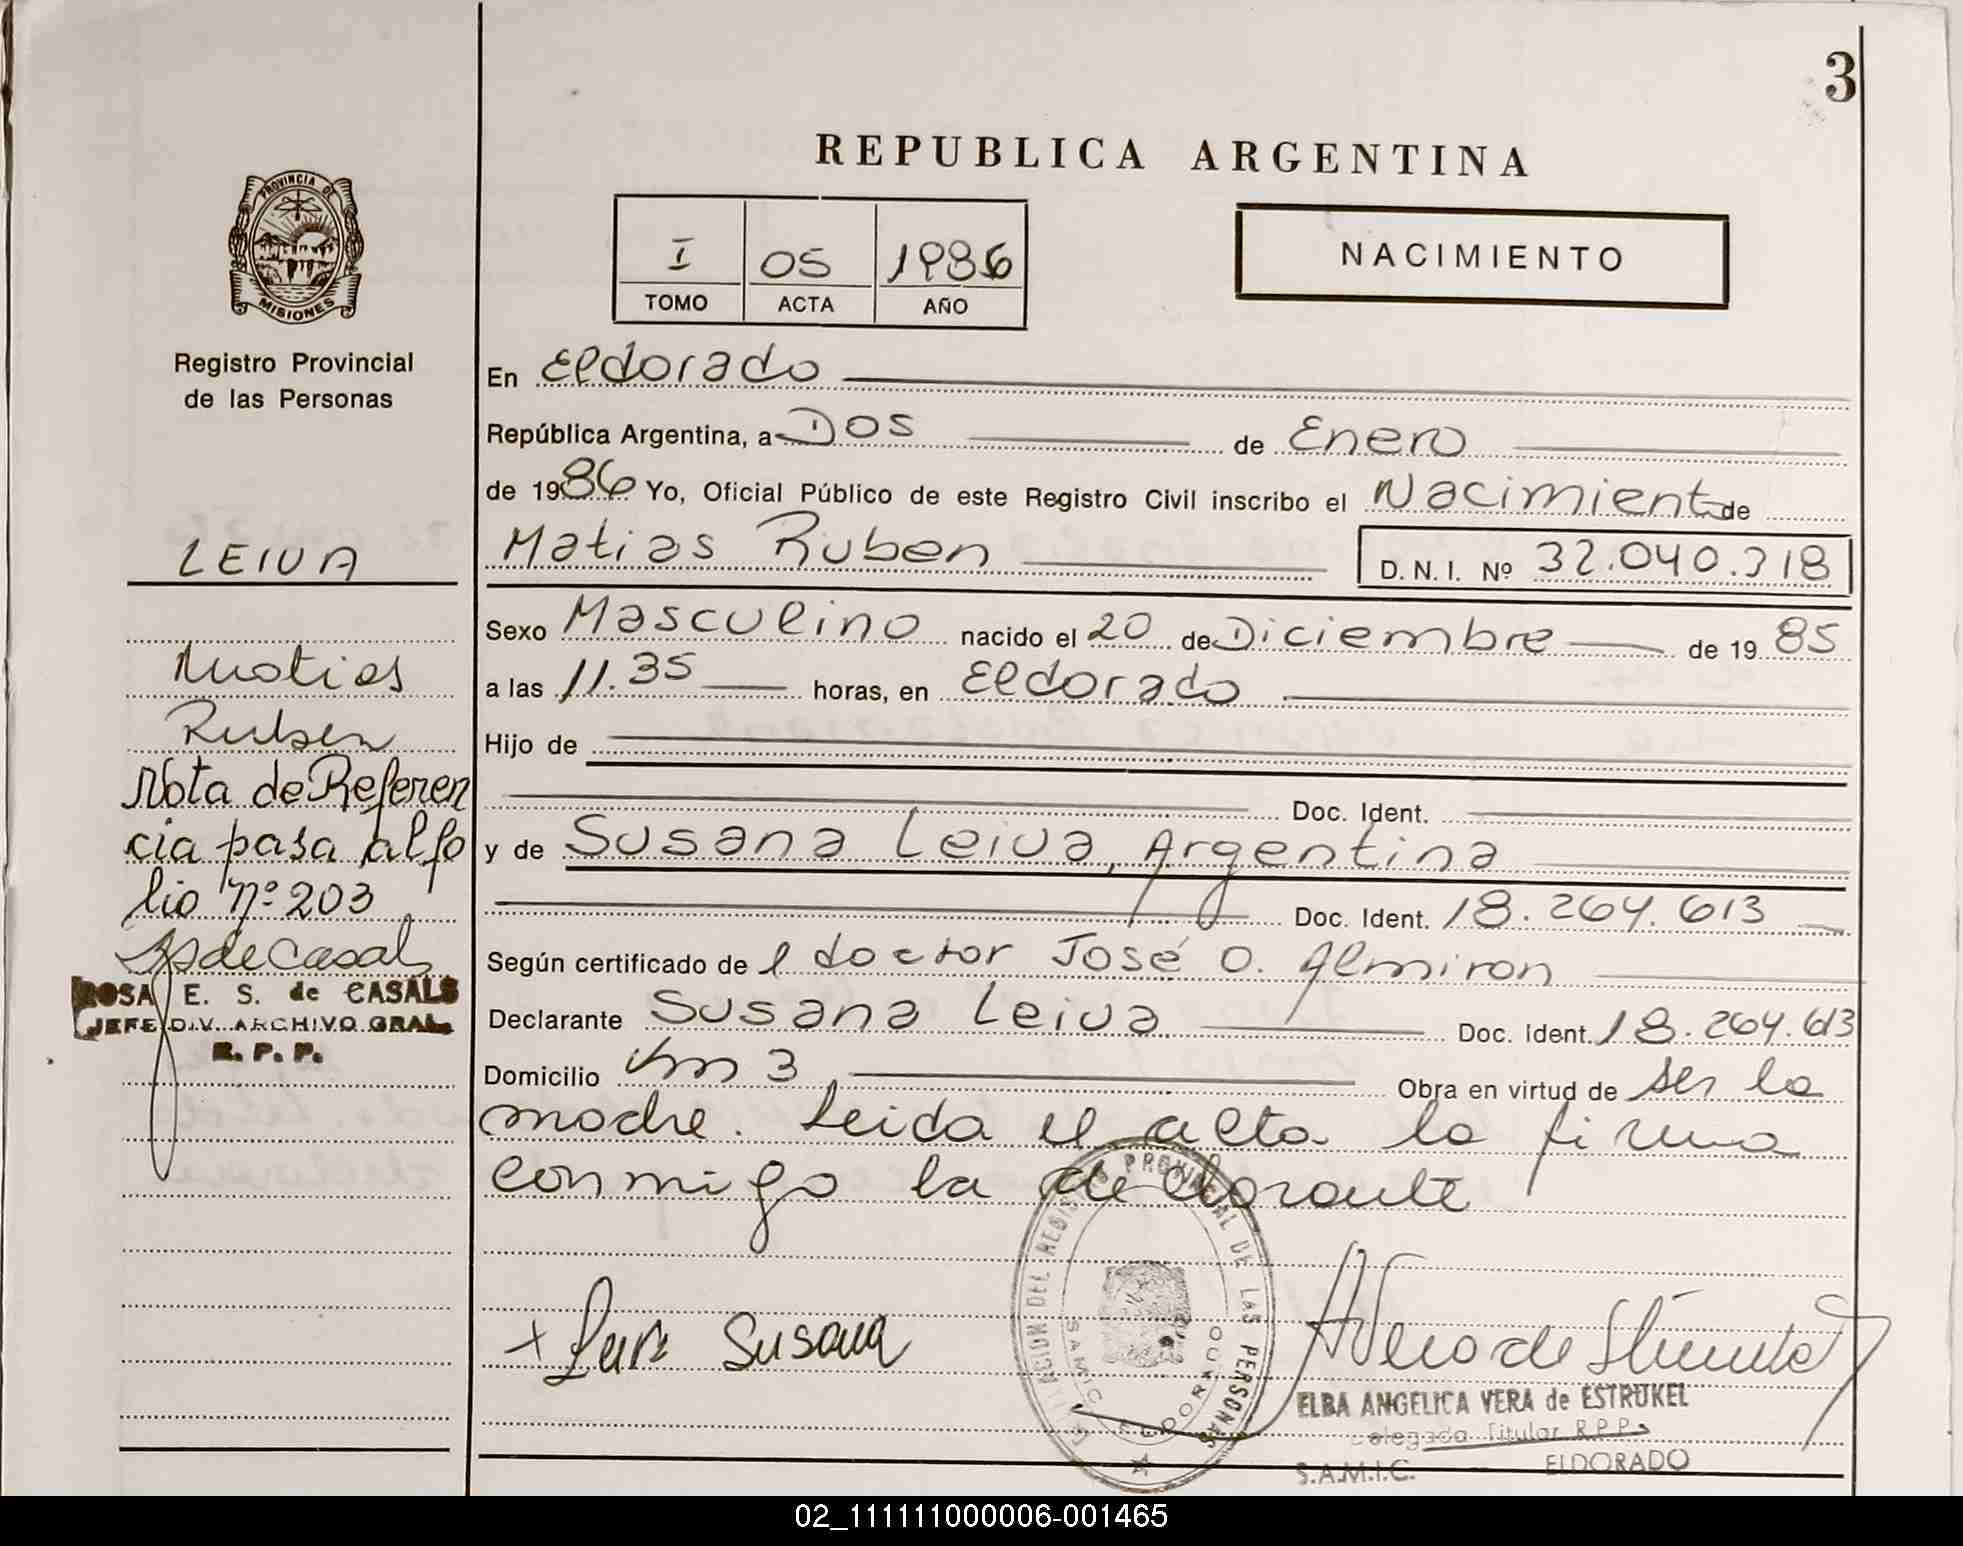 3
REPUBLICA ARGENTINA
PROVINCIA DE
MISIONES
Registro Provincial
de las Personas
I 05 1986
TOMO ACTA AÑO
NACIMIENTO
En Eldorado
República Argentina, a Dos de Enero
de 1986 Yo, Oficial Público de este Registro Civil inscribo el Nacimient de
LEIVA
Matias Ruben D. N. I. Nº 32.040.318
Sexo Masculino nacido el 20 de Diciembre de 19 85
Matias
a las 11.35 horas, en Eldorado
Ruben
Hijo de
Nota de Referen
Doc. Ident.
cia pasa al fo
y de Susana Leiva, Argentina
lio nº 203
Doc. Ident. 18.264.613
Según certificado de l doctor José O. Almiron
ROSA E. S. de CASALS
JEFE DIV. ARCHIVO GRAL.
R. P. P.
Declarante Susana Leiva Doc. Ident. 18.264.613
Domicilio Km 3 Obra en virtud de ser la
madre. Leida el acta la firma
conmigo la declarante
PROVINCIAL DE LAS PERSONAS
SAMIC ELDORADO
Susana
ELBA ANGELICA VERA de ESTRUKEL
Delegada Titular R.P.P.
S.A.M.I.C. ELDORADO
02_111111000006-001465